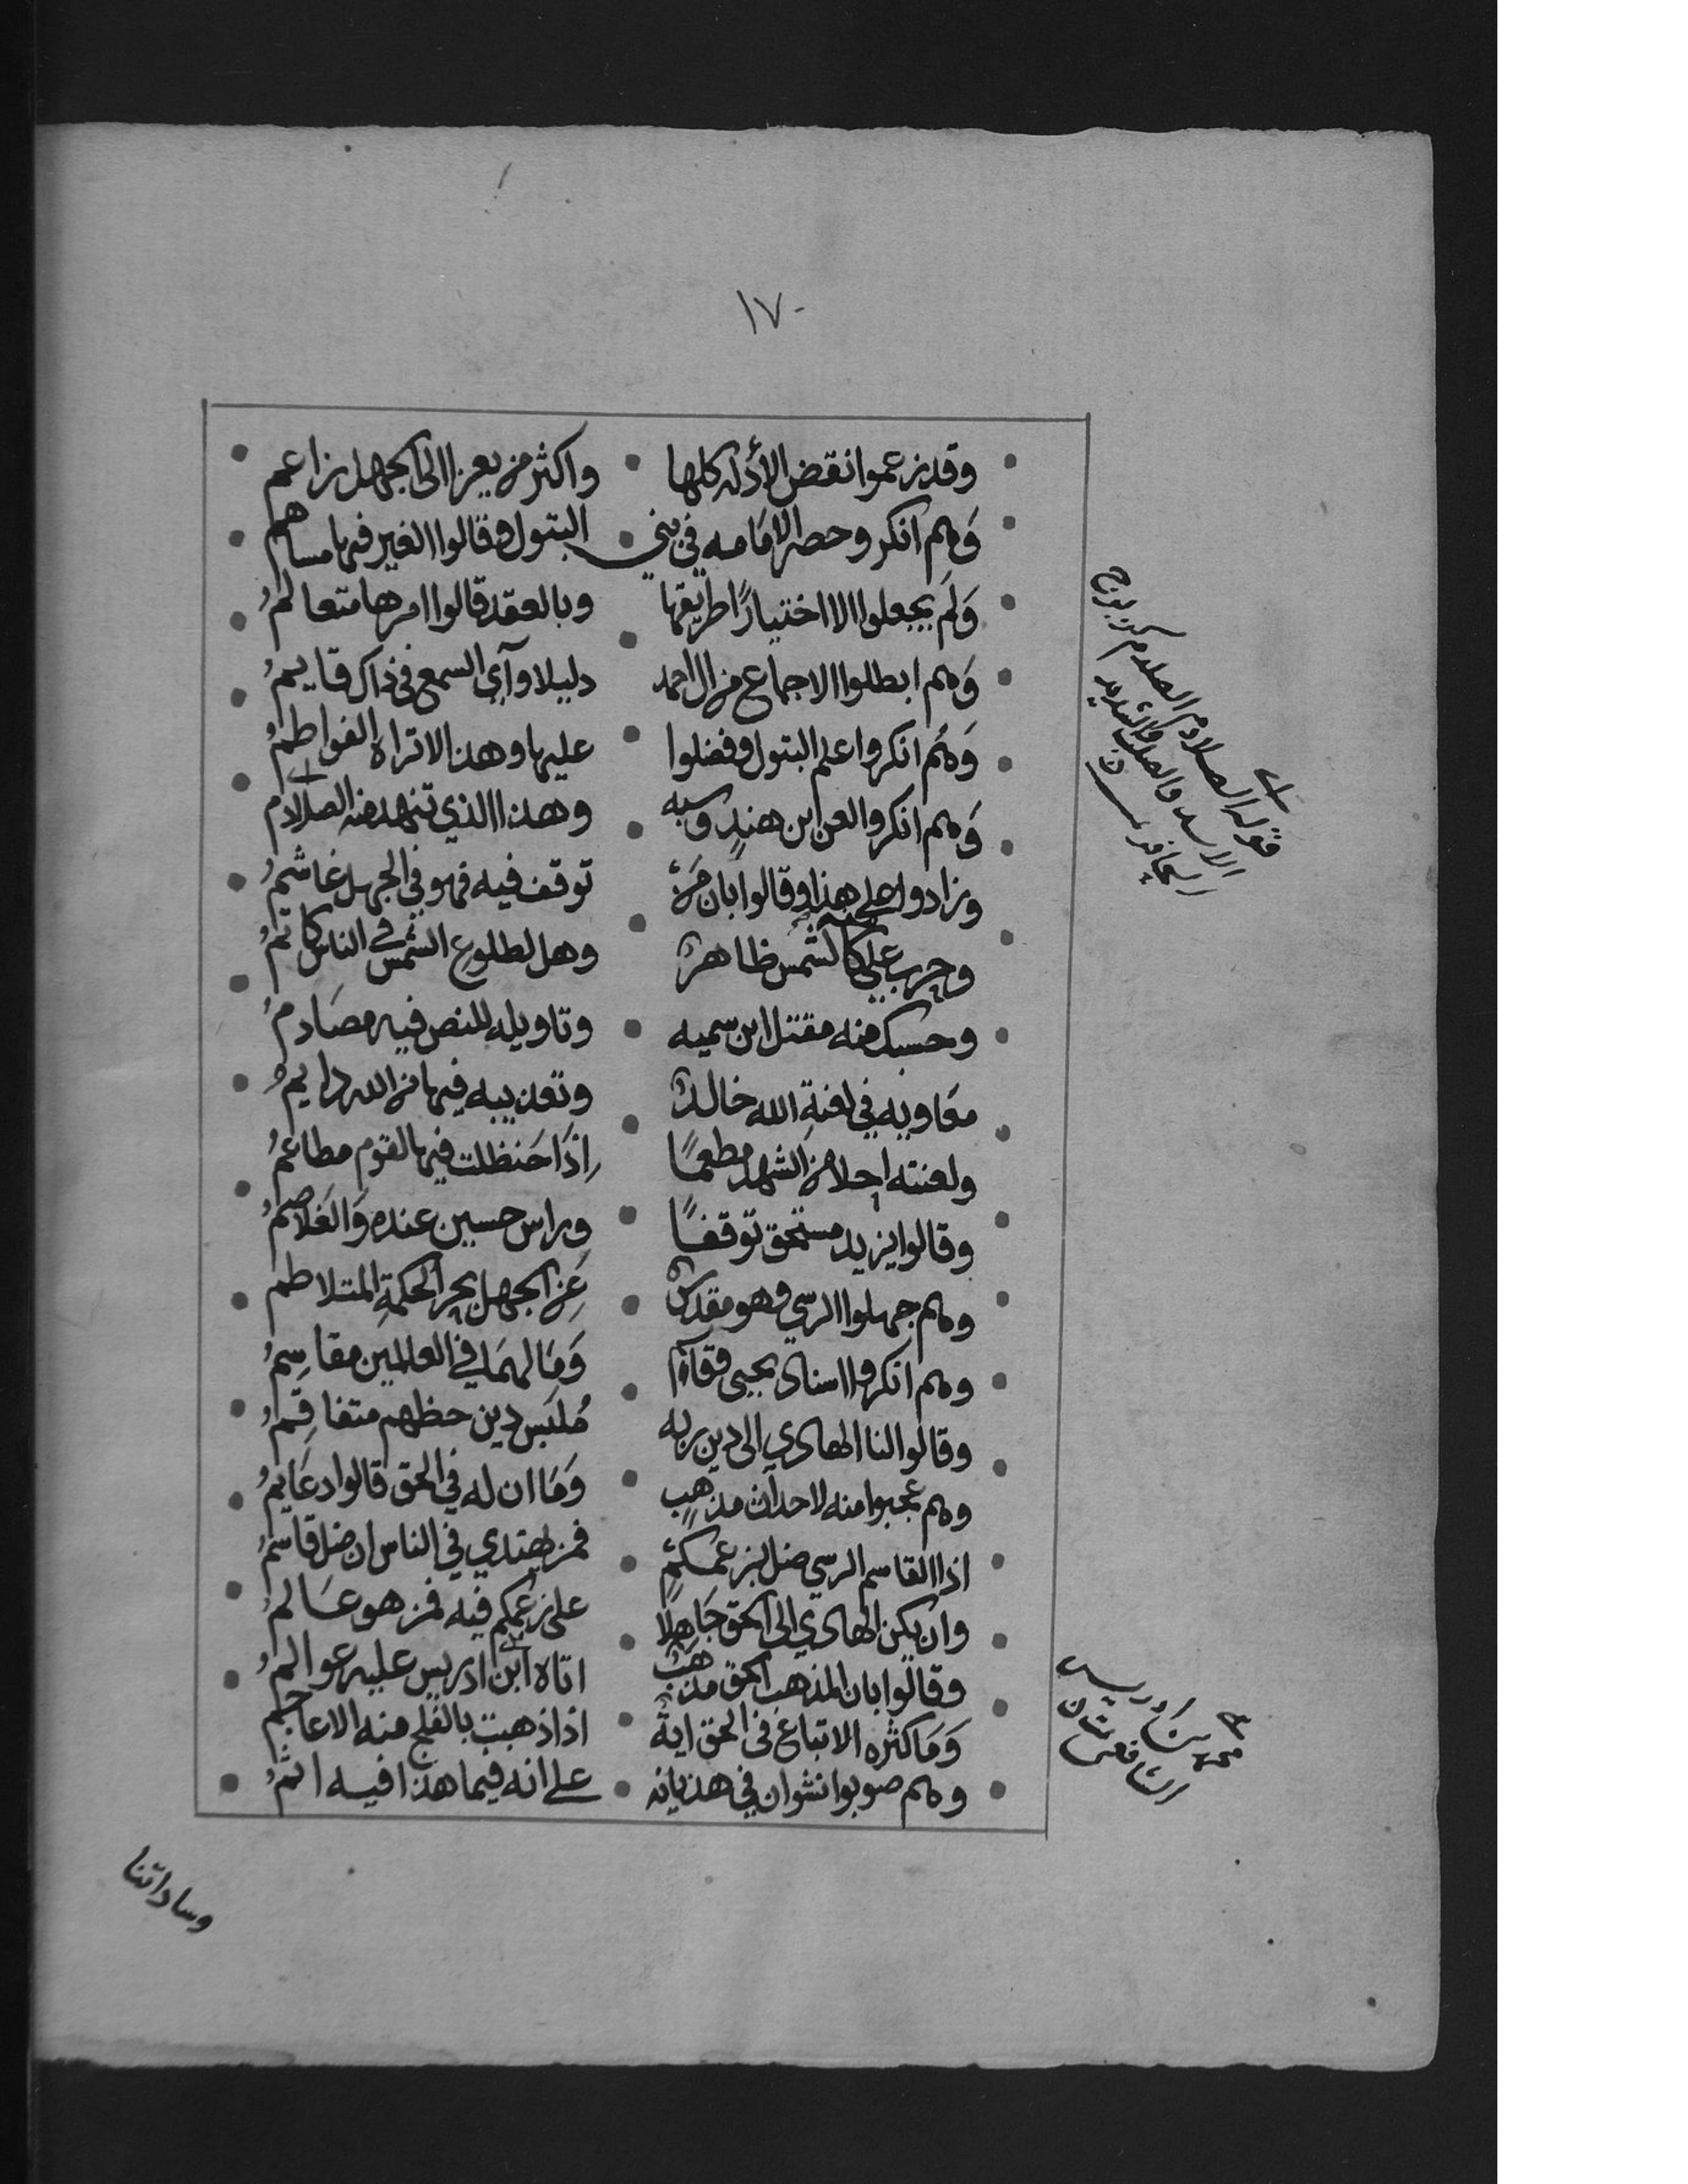 ١٧٠
وقد زعموا نقض الأدلة كلها • واكثر من يعزا الى الجهل زاعم
وَهم انكرو حصر الامَامه في بني • البتول وقالوا الغير فيها مساهم
وَلَم يجعلوا الا اختيارًا طريقها • وبالعقد قالوا امرها متعالمُ
وَهم ابطلوا الاجماع من ال احمد • دليلا وآي السمع في ذاك قايمُ
وَهُم انكروا علم البتول وفضلوا • عليها وهذا لا تراه الفواطمُ
وَهم انكروا لعن ابن هندٍ وسبه • وهذا الذي تنهد منه الصلادم
وزادوا على هذا وقالوا بان مَن • توقف فيه فهو في الجهل غاشمُ
وحرب علي كالشمس ظاهرة • وهل لطلوع الشمس في الناس كاتمُ
وحسبك منه مقتل ابن سميه • وتاويله للنص فيه مصَادمُ
معَاويه في لعنةِ الله خالدٌ • وتعذيبه فيها من الله دايمُ
ولعنته احلا من الشهد مطعمًا • اِذَا حَنظلت فيها لقوم مطاعمُ
وقالوا يزيد مستحق توقفًا • وراس حسين عنده وَالغَلاصمُ
وهم جهلوا الرسي وهو مقدسٌ • عَن الجهل بحر الحكمةِ المتلاطم
وهم انكروا اسنادي يحيى وقاسم • وَمَا لهمَا في العالمين مقاسِمُ
وقالوا لنا الهادي الى دين ربه • مُلبَس دين حظهم متفاقِمُ
وهم عجبوا منه لاحداث مذهبٍ • وَمَا ان له في الحق قالوا دعَايمُ
اذا القاسم الرسي ضل بزعمكم • فمن يهتدي في الناس ان ضل قاسمُ
وان يكن الهادي الى الحق جَاهلًا • على زعمكم فيه فمن هو عَالمُ
وقالوا بان المذهب الحق مذهبٌ • اتاه ابن ادريس عليه عوالمُ
وَمَا كثره الاتباع في الحق ايةً • اذا ذهبت بالفلج منه الاعاجمُ
وهم صوبوا نشوان في هذيانه • على انه فيما هذا فيه اثمُ
وساداتنا
قوله الصلادم الصلدم كزبرج
الاسد والصلب والشديد
الحافر
محمد بن ادريس
الشافعي